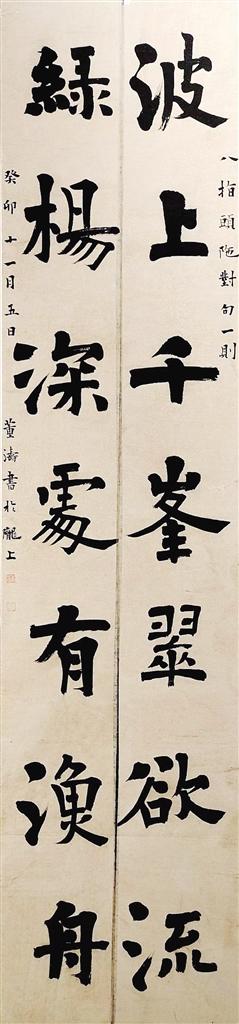 八指頭陀對句一則
波上千峯翠欲流
綠楊深處有漁舟
癸卯十一月五日 董濤書於隴上